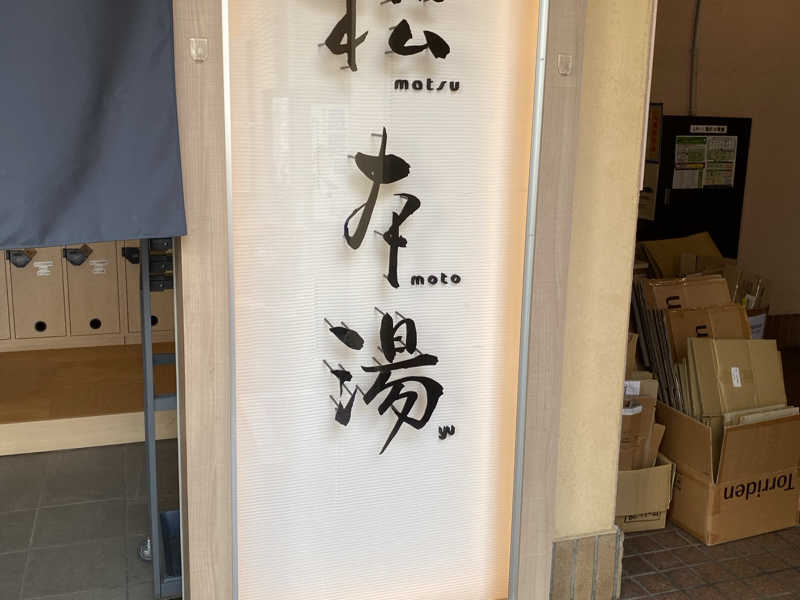 松
matsu
本
moto
湯
yu
Torriden